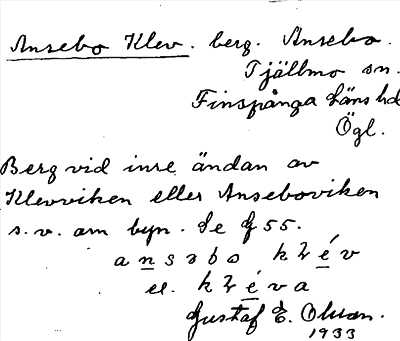 Ansebo Klev. berg. Ansebo.
Tjällmo sn.
Finspånga läns hd
Ögl.
Berg vid inre ändan av
Klevviken eller Anseboviken
s.v. om byn. Se G 55.
ansəbo kλév
el. kλéva
Gustaf E. Olsson.
1933